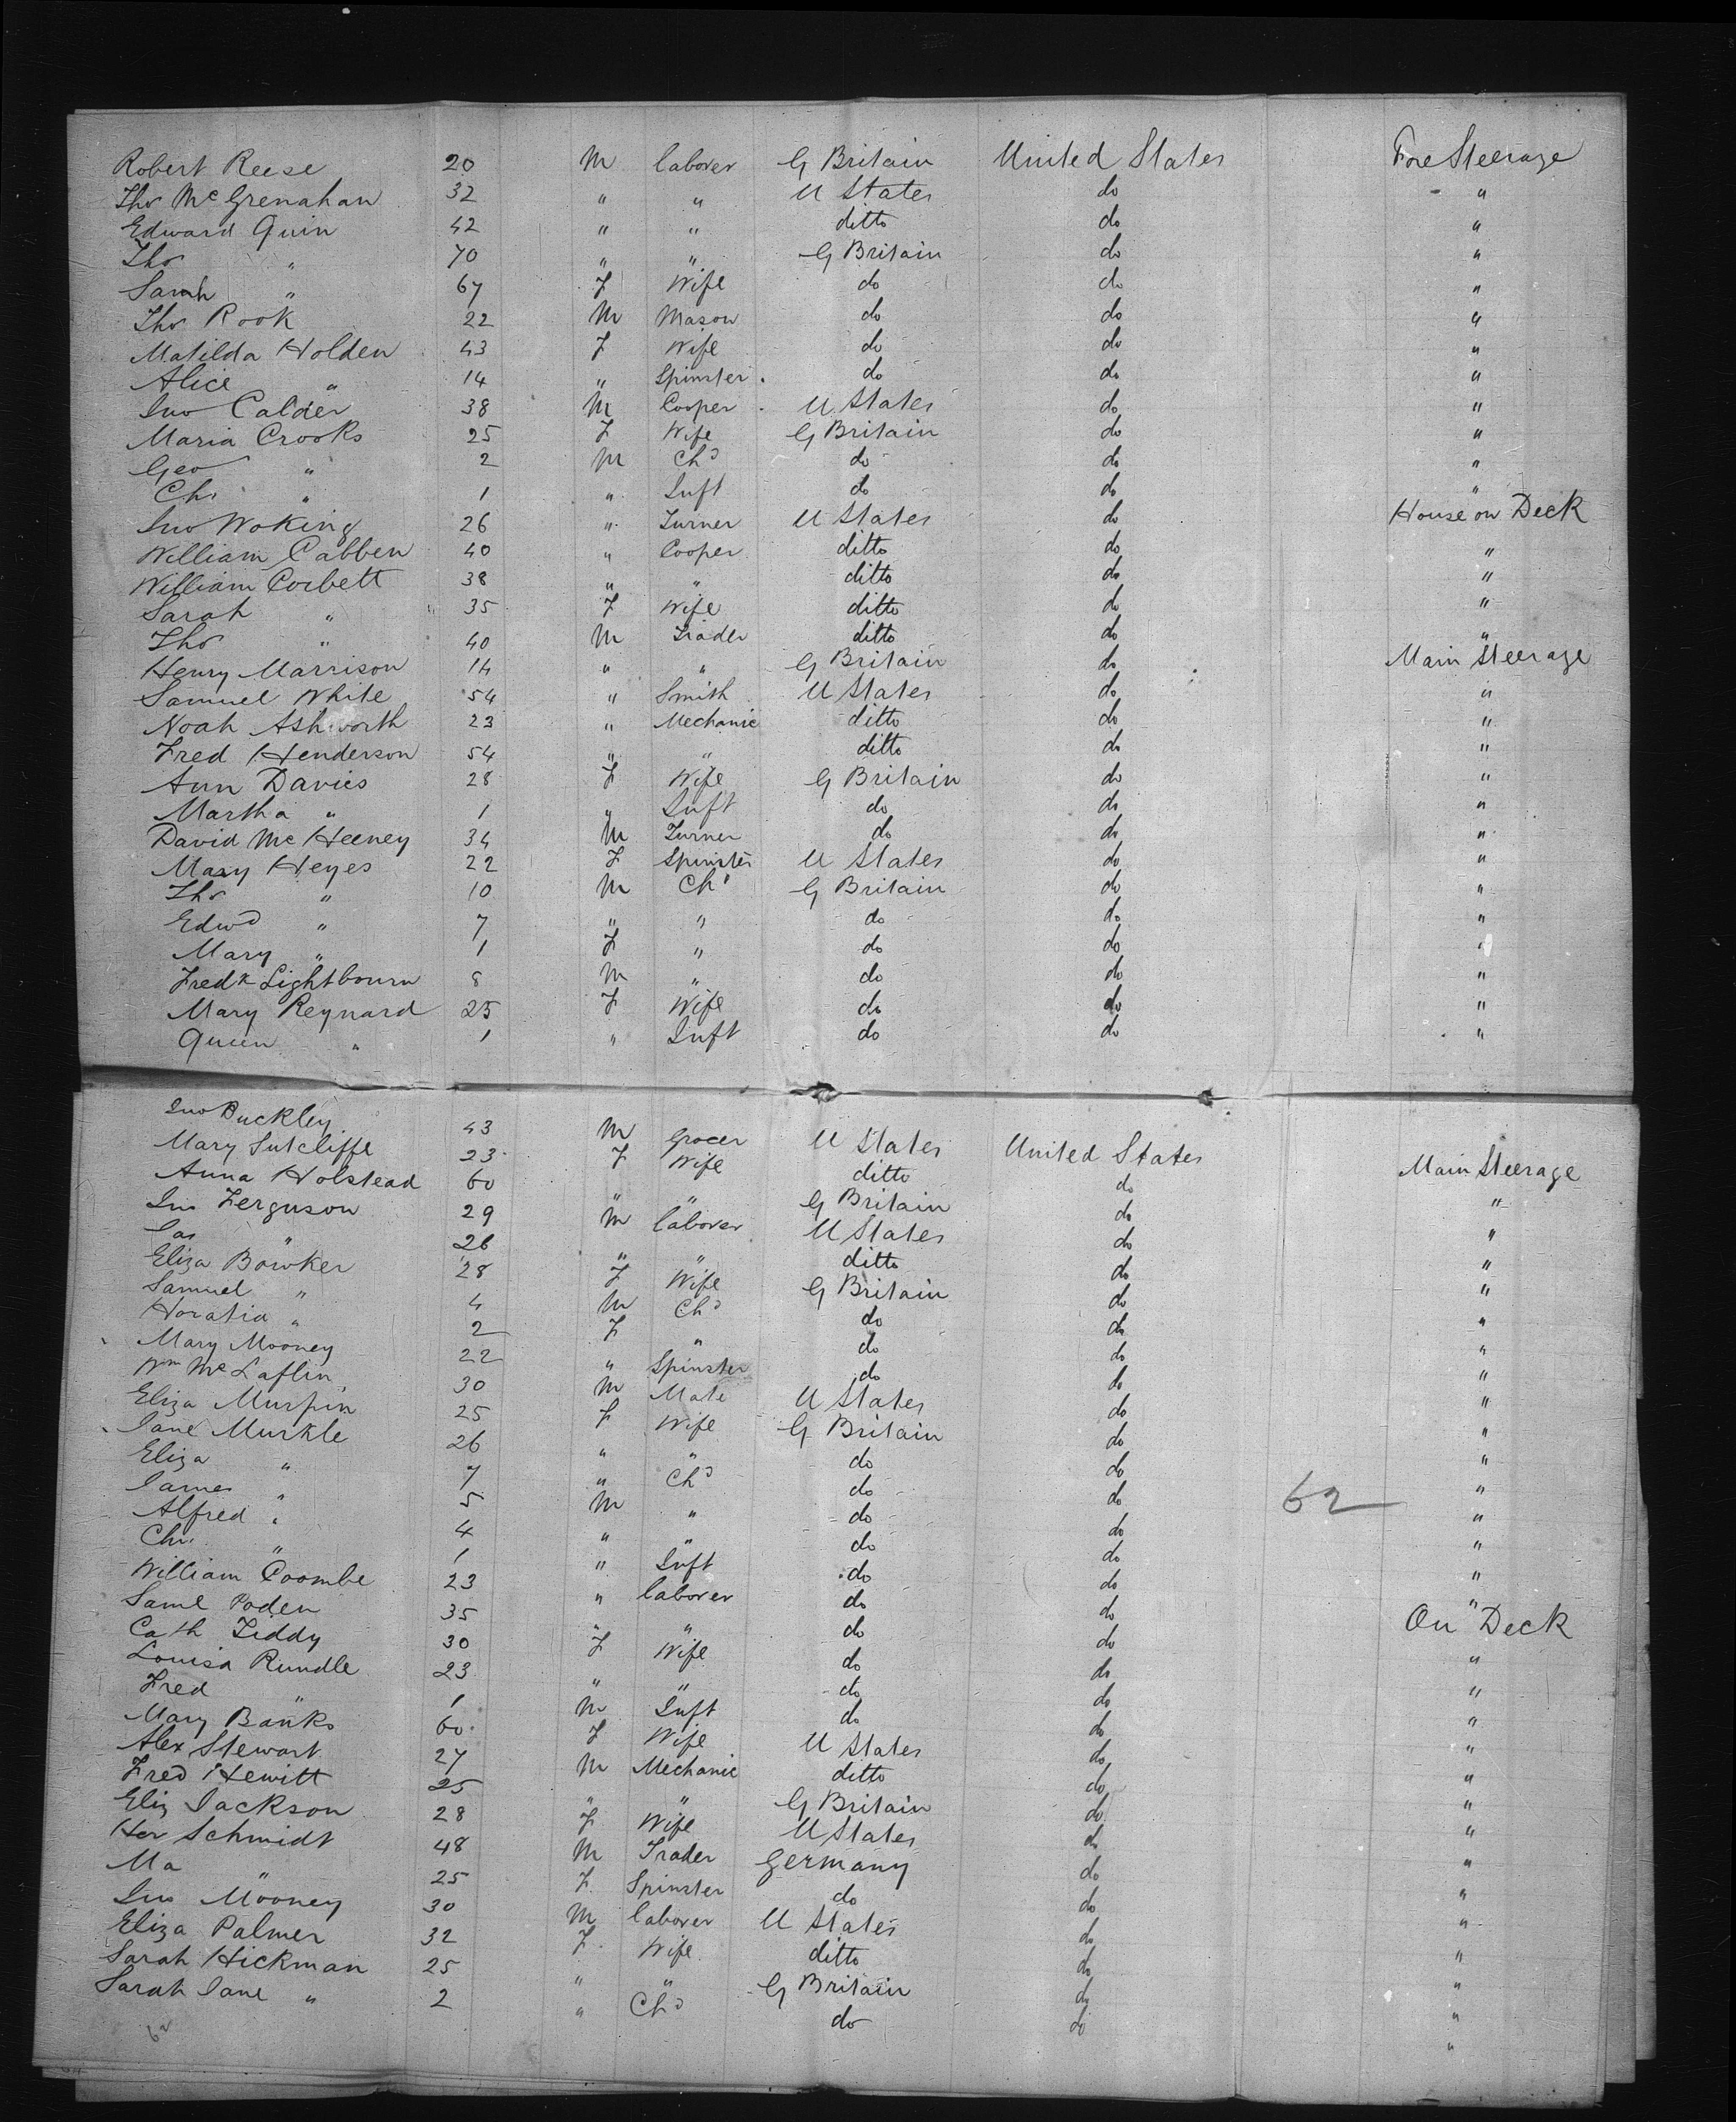 Robert Reese 20 M laborer G Britain United States Fore Steerage
Thos McGrenahan 32 " " U States do "
Edward Quin 42 " " ditto do "
Thos " 70 " " G Britain do "
Sarah " 67 F Wife do do "
Thos Rook 22 M Mason do do "
Matilda Holden 43 F Wife do do "
Alice " 14 " Spinster do do "
Jno Calder 38 M Cooper U States do "
Maria Crooks 25 F Wife G Britain do "
Geo " 2 M Chd do do "
Chs " 1 " Inft do do "
Jno Woking 26 " Turner U States do House on Deck
William Cabben 40 " Cooper ditto do "
William Corbett 38 " " ditto do "
Sarah " 35 F Wife ditto do "
Thos " 40 M Trader ditto do "
Henry Marrison 14 " " G Britain do Main Steerage
Samuel White 54 " Smith U States do "
Noah Ashworth 23 " Mechanic ditto do "
Fred Henderson 54 " " ditto do "
Ann Davies 28 F Wife G Britain do "
Martha " 1 " Inft do do "
David McHeeney 34 M Turner do do "
Mary Heyes 22 F Spinster U States do "
Thos " 10 M Chd G Britain do "
Edwd " 7 " " do do "
Mary " 1 F " do do "
Fredk Lightbourn 8 M " do do "
Mary Reynard 25 F Wife do do "
Queen " 1 " Inft do do "
Jno Buckley 43 M Grocer U States United States Main Steerage
Mary Sutcliffe 23 F Wife ditto do "
Anna Holstead 60 " " G Britain do "
Jno Ferguson 29 M laborer U States do "
Jas " 26 " " ditto do "
Eliza Bowker 28 F Wife G Britain do "
Samuel " 4 M Chd do do "
Horatia " 2 F " do do "
Mary Mooney 22 " Spinster do do "
Wm McLaflin 30 M Mate U States do "
Eliza Murfin 25 F Wife G Britain do "
Jane Murkle 26 " " do do "
Eliza " 7 " Chd do do "
James " 5 M " do do "
Alfred " 4 " " do do "
Chs " 1 " Inft do do "
William Coombe 23 " laborer do do "
Saml Poden 35 " " do do On Deck
Cath Tiddy 30 F Wife do do "
Louisa Rundle 23 " " do do "
Fred " 1 M Inft do do "
Mary Banks 60 F Wife U States do "
Alex Stewart 27 M Mechanic ditto do "
Fred Hewitt 25 " " G Britain do "
Eliz Jackson 28 F Wife U States do "
Her Schmidt 48 M Trader Germany do "
Ma " 25 F Spinster do do "
Jno Mooney 30 M laborer U States do "
Eliza Palmer 32 F Wife ditto do "
Sarah Hickman 25 " " G Britain do "
Sarah Jane " 2 " Chd do do "
62
62